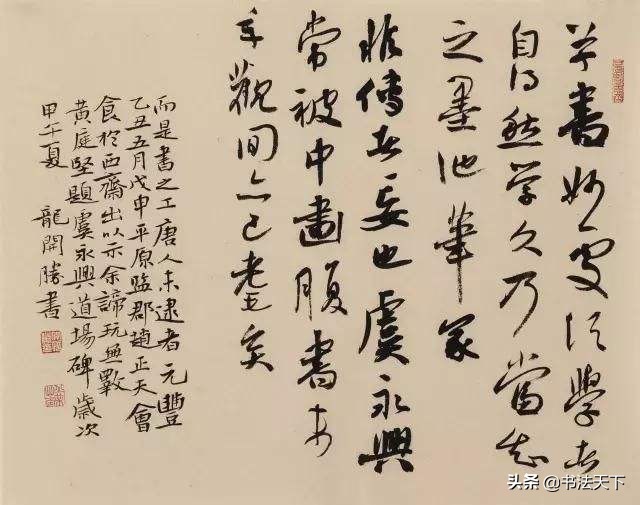 草書妙處須學者
自得然學久乃當知
之墨池筆冢
非傳者妄也虞永興
常被中畫腹書末
年觀間亦已耄矣
而是書之工唐人未逮者元豐
乙丑五月戊申平原監郡趙正夫會
食於西齋出以示余諦玩無斁
黃庭堅題虞永興道場碑歲次
甲午夏 龍開勝書
头条 @书法天下